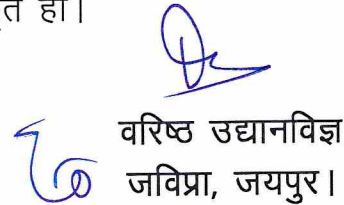 हो।
वरिष्ठ उद्यानविज्ञ
जविप्रा, जयपुर।